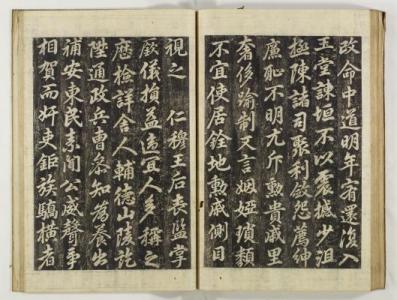 改命中道明年宥還復入
玉堂諫垣不以震撼少沮
極陳諸司聚利斂怨薦紳
廉恥不明尤斥勳貴戚里
奢侈踰制又言姻婭瑣類
不宜使居銓地勳戚側目
視之 仁穆王后喪監掌
厥儀損益適宜人多稱之
歷檢詳舍人輔德山陵訖
陞通政兵曹叅知爲養出
補安東民素聞公威聲爭
相賀而奸吏鉅族驕橫者